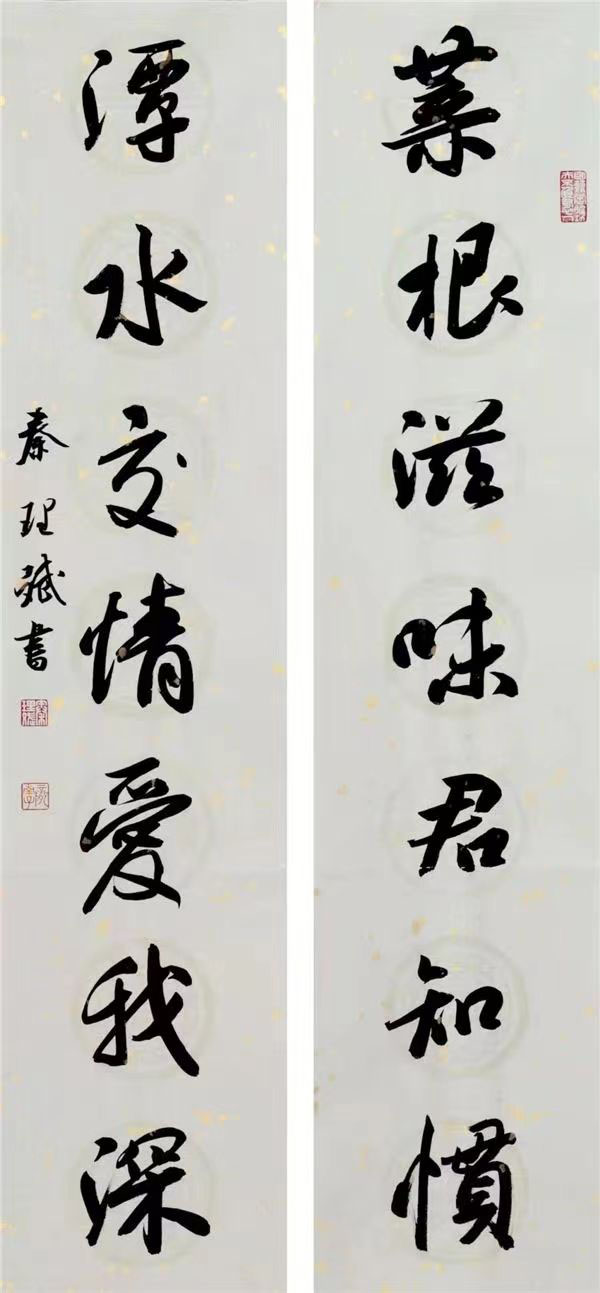 菜根滋味君知慣
潭水交情愛我深
秦理斌書